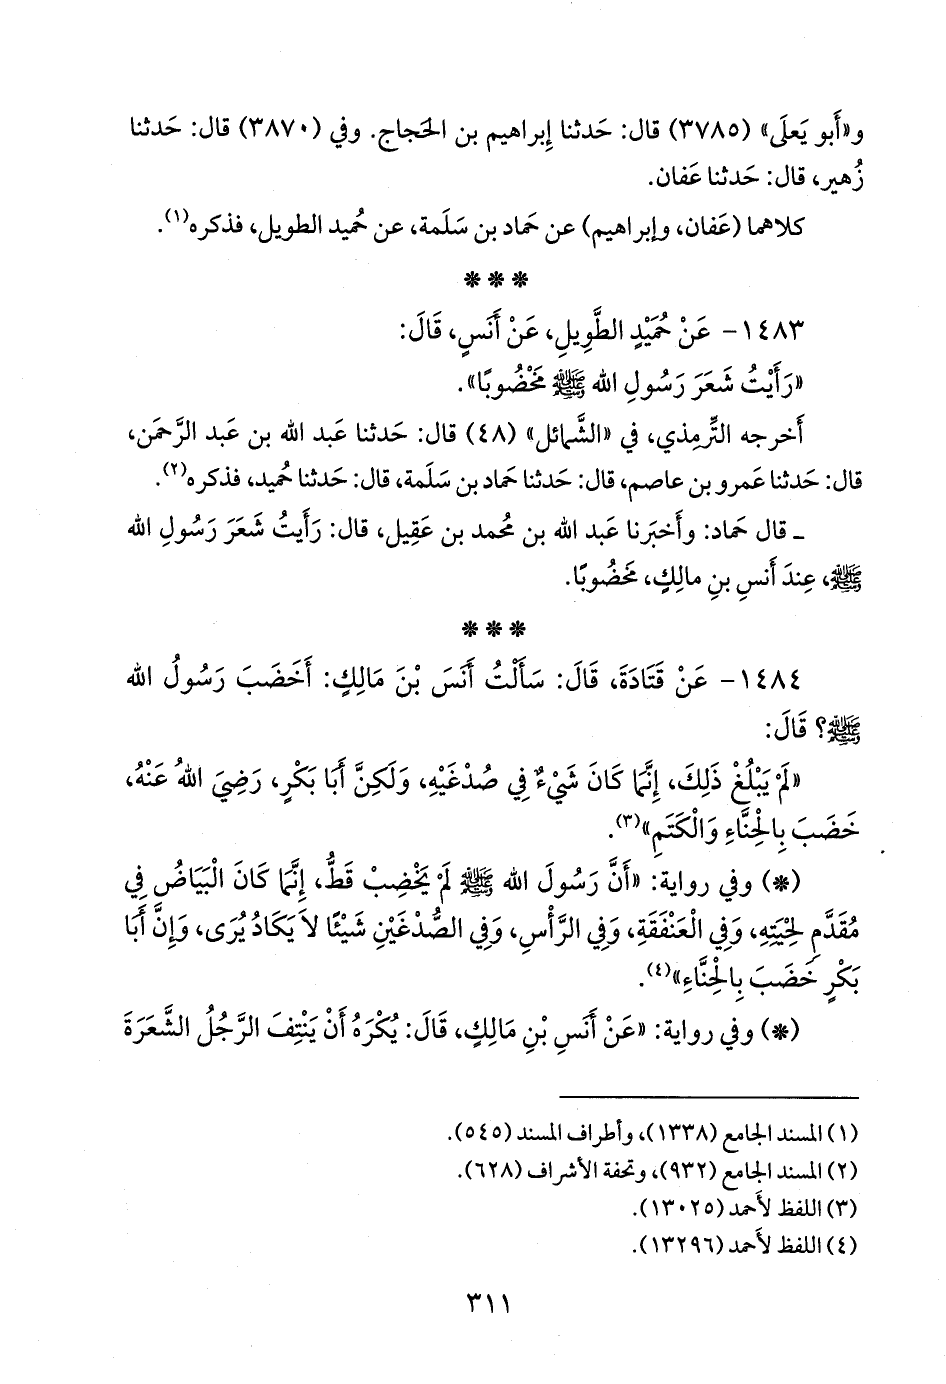 و«أَبو يَعلَى» (٣٧٨٥) قال: حَدثنا إِبراهيم بن الحَجاج. وفي (٣٨٧٠) قال: حَدثنا
زُهير، قال: حَدثنا عَفان.
كلاهما (عَفان، وإِبراهيم) عن حَماد بن سَلَمة، عن حُميد الطويل، فذكره(١).
* * *
١٤٨٣- عَنْ حُمَيْدٍ الطَّوِيلِ، عَنْ أَنَسٍ، قَالَ:
«رَأَيْتُ شَعَرَ رَسُولِ الله ﷺ مَخْضُوبًا».
أَخرجه التِّرمِذي، في «الشَّمائل» (٤٨) قال: حَدثنا عَبد الله بن عَبد الرَّحمَن،
قال: حَدثنا عَمرو بن عاصم، قال: حَدثنا حَماد بن سَلَمة، قال: حَدثنا حُميد، فذكره(٢).
ـ قال حَماد: وأَخبَرنا عَبد الله بن مُحمد بن عَقِيل، قال: رَأَيتُ شَعَرَ رَسُولِ الله
ﷺ، عِندَ أَنسِ بنِ مالِكٍ، مَخضُوبًا.
* * *
١٤٨٤- عَنْ قَتَادَةَ، قَالَ: سَأَلْتُ أَنَسَ بْنَ مَالِكٍ: أَخَضَبَ رَسُولُ الله
ﷺ؟ قَالَ:
«لَمْ يَبْلُغْ ذَلِكَ، إِنَّمَا كَانَ شَيْءٌ فِي صُدْغَيْهِ، وَلَكِنَّ أَبَا بَكْرٍ، رَضِيَ اللهُ عَنْهُ،
خَضَبَ بِالْحِنَّاءِ وَالْكَتَمِ»(٣).
(*) وفي رواية: «أَنَّ رَسُولَ الله ﷺ لَمْ يَخْضِبْ قَطُّ، إِنَّمَا كَانَ الْبَيَاضُ فِي
مُقَدَّمِ لِحْيَتِهِ، وَفِي الْعَنْفَقَةِ، وَفِي الرَّأْسِ، وَفِي الصُّدْغَيْنِ شَيْئًا لاَ يَكَادُ يُرَى، وَإِنَّ أَبَا
بَكْرٍ خَضَبَ بِالْحِنَّاءِ»(٤).
(*) وفي رواية: «عَنْ أَنَسِ بْنِ مَالِكٍ، قَالَ: يُكْرَهُ أَنْ يَنْتِفَ الرَّجُلُ الشَّعَرَةَ
(١) المسند الجامع (١٣٣٨)، وأطراف المسند (٥٤٥).
(٢) المسند الجامع (٩٣٢)، وتحفة الأشراف (٦٢٨).
(٣) اللفظ لأَحمد (١٣٠٢٥).
(٤) اللفظ لأَحمد (١٣٢٩٦).
٣١١